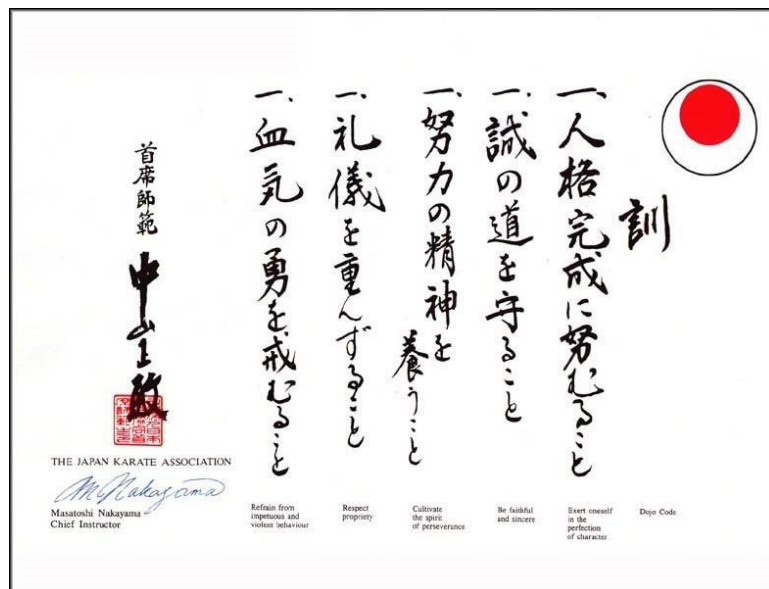 訓
一、人格完成に努むること
一、誠の道を守ること
一、努力の精神を養うこと
一、礼儀を重んずること
一、血気の勇を戒むること
首席師範
中山正敏
THE JAPAN KARATE ASSOCIATION
M Nakayama
Masatoshi Nakayama
Chief Instructor
Refrain from
impetuous and
violent behaviour
Respect
propriety
Cultivate
the spirit
of perseverance
Be faithful
and sincere
Exert oneself
in the
perfection
of character
Dojo Code